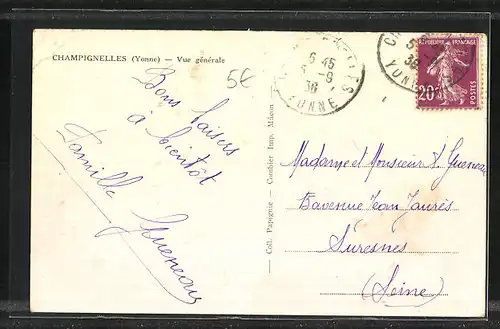 CHAMPIGNELLES (Yonne) — Vue générale
5€
Bons baisers
à bientôt
Famille Gueneau
Coll. Papaguie — Combier Imp. Mâcon
6 45
-9
36
YONNE
36
YONNE
REPUBLIQUE FRANÇAISE
20c
POSTES
Madame et Monsieur Gueneau
avenue Jean Jaurès
Suresnes
(Seine)